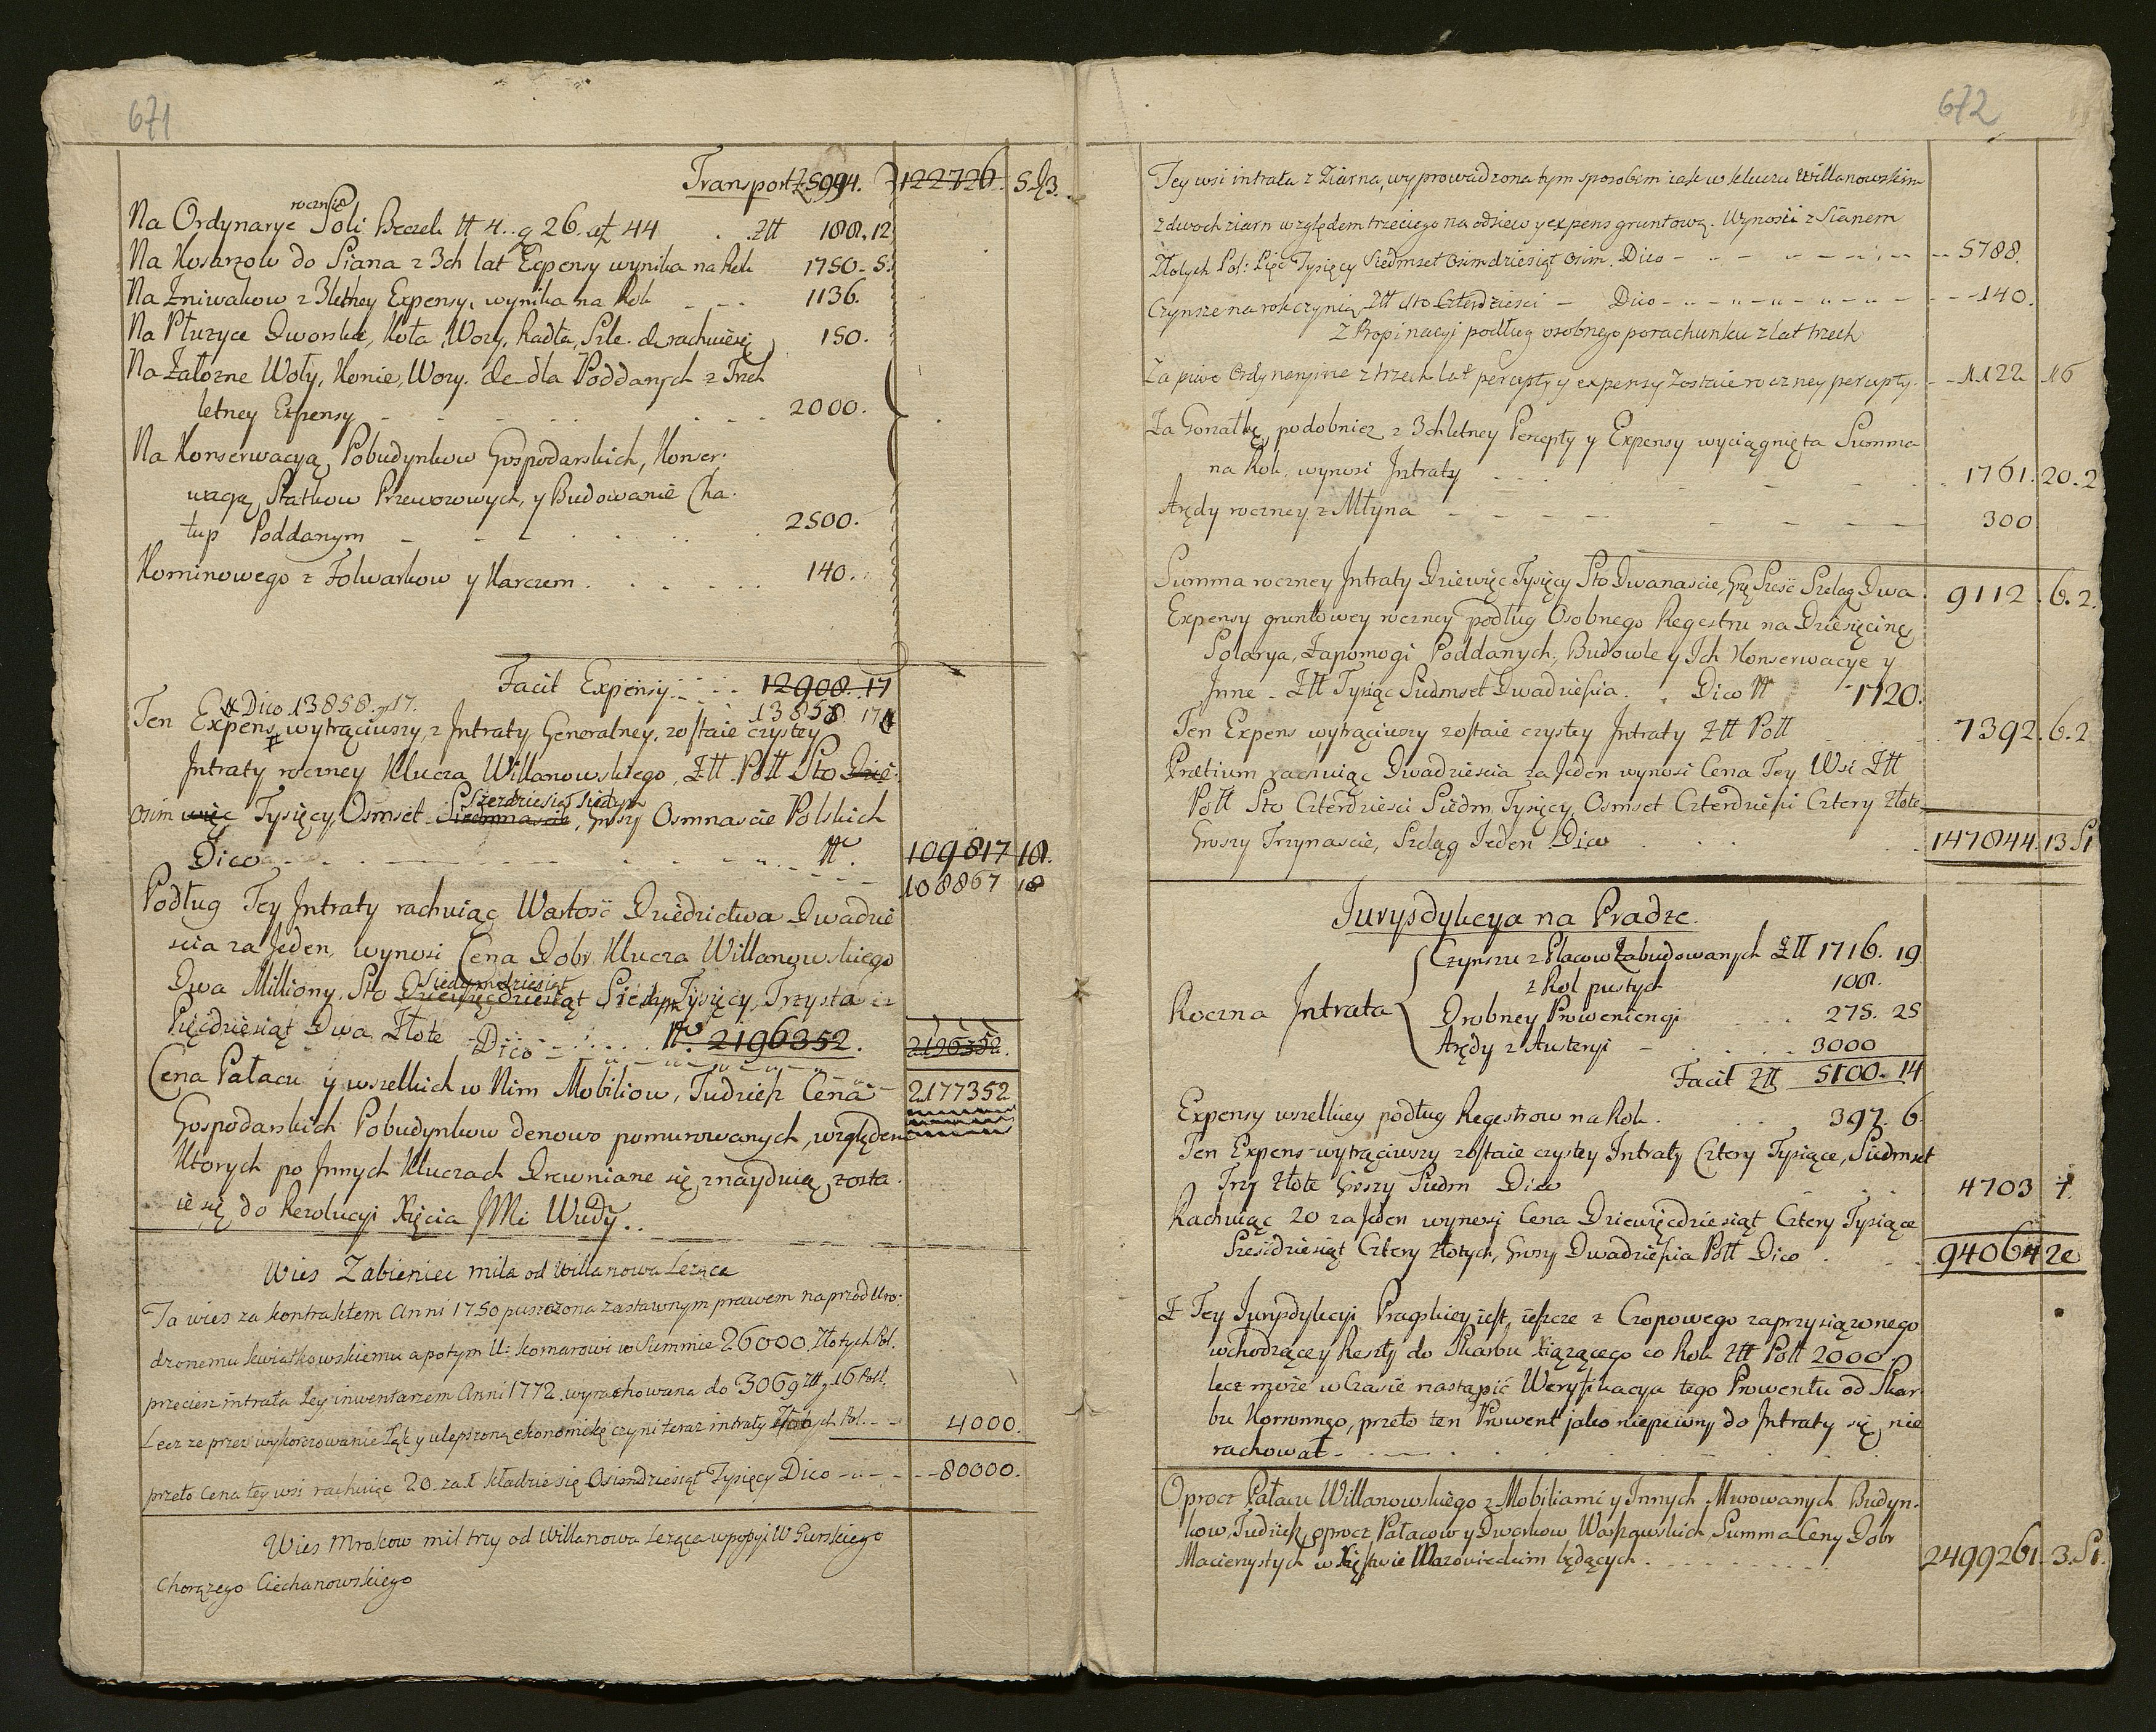 671
Transport 5994. 122726. 5. 3.
Na Ordynarye rocznie Soli Beczek tt 4. g 26. 44 Ztt 188. 12
Na Kosarzow do Siana z 3ch lat Expensy wynika na Rok 1750. 5.
Na Zniwakow z 3letney Expensy, wynika na Rok 1136.
Na Płużyce Dworskie, Koła, Wozy, Radła, Szle. &c rachuięcę 150.
Na Załozne Woły, Konie, Wozy. &c dla Poddanych z Trzech
letney Expensy 2000.
Na Konserwacyą Pobudynkow Gospodarskich, Konser.
wacyą Statkow Przewozowych, y Budowanie Cha.
łup Poddanym 2500.
Kominowego z Folwarkow y Karczem 140.
Facit Expensy 12908. 17
Dico 13858. 17. 13858 17
Ten Expens wytrąciwszy, z Intraty Generalney, zostaie czystey
Intraty roczney Klucza Willanowskiego, Ztt. Poll Sto Dzie
Osim więc Tysięcy, Osmset Siedmnascie Szezdziesiąt Siedm, Groszy Osmnascie Polskich
Dico 109817 18.
108867 18
Podług Tey Intraty rachuiąc Wartość Dziedzictwa Dwadzie
scia za Jeden, wynosi Cena Dobr Klucza Willanowskiego
Dwa Milliony, Sto Dziewięćdziesiąt Siedymdziesiąt Siedm Tysięcy, Trzysta
Pięćdziesiąt Dwa Złote Dico 2196352. 2196352.
Cena Pałacu y wszelkich w Nim Mobiliow, Tudziesz Cena 2177352
Gospodarskich Pobudynkow denowo pomurowanych, względem
Ktorych po Innych Kluczach Drewniane się znayduią, zosta.
ie się do Rezolucyi Xięcia JMci Wudy..
Wies Zabieniec mila od Willanowa Leząca
Ta wies za kontraktem Anni 1750 puszczona zastawnym prawem naprzod Uro.
dzonemu kwiatkowskiemu a potym U: komarowi w Summie 26000 Złotych Pol.
przeciesz intrata tey inwentarzem Anni 1772. wyrachowana do 3069 Ztt, 16 Poll.
Lecz ze przez wykorzowanie Łąk y ulepszoną ekonomikę czyni teraz intraty Złotych Pol. 4000.
przeto Cena tey wsi rachuiąc 20. za 1 kładzie się Osiemdziesiąt Tysięcy Dico 80000.
Wies Mrokow mil trzy od Willanowa Leząca w possessyi W Gurskiego
Chorązego Ciechanowskiego
672
Tey wsi intrata z Ziarna, wyprowadzona tym sposobem iak w kluczu Willanowskim
z dwoch ziarn względem trzeciego na odsiew y expens gruntową. Wynosi z Sianem
Złotych Pol: Pięć Tysięcy Siedmset Osimdziesiąt Osim. Dico 5788.
Czynsze na rok czynią Ztt Sto Czterdziesci Dico 140.
Z Propinacyi podług osobnego porachunku z lat trzech
Za piwo Ordynaryine z trzech lat percepty y expensy zostaie roczney percepty. 1122 16
Za Gorzałkę podobniez z 3chletney Percepty y Expensy wyciągnięta Summa
na Rok, wynosi Intraty 1761. 20. 2
Arędy roczney z Młyna 300
Summa roczney Intraty Dziewięć Tysięcy Sto Dwanascie, Grę Szesć Szeląg Dwa 9112. 6. 2.
Expensy gruntowey roczney podług Osobnego Regestru na Dziesięcinę
Solarya, Zapomogi Poddanych, Budowle y Ich Konserwacye y
Inne. Ztt Tysiąc Siedmset Dwadziescia. Dico 1720.
Ten Expens wytrąciwszy zostaie czystey Intraty Ztt Poll 7392. 6. 2
Prætium rachuiąc Dwadziescia za Jeden wynosi Cena Tey Wsi Ztt
Poll Sto Czterdziesci Siedm Tysięcy, Osmset Czterdziesci Cztery Złote
Groszy Trzynascie, Szeląg Jeden Dico 147844. 13 S1
Jurysdykcya na Pradze.
Roczna Intrata
Czynszu z Placow Zabudowanych Ztt 1716. 19
z Rol pustych 108.
Drobney Prowenciencyi 275. 25
Arędy z Austeryi 3000
Facit Ztt 5100. 14
Expensy wszelkiey podług Regestrow na Rok. 397. 6
Ten Expens wytrąciwszy zostaie czystey Intraty Cztery Tysiące, Siedmset
Trzy Złote Groszy Siedm Dico 4703 7.
Rachuiąc 20 za Jeden wynosi Cena Dziewięćdziesiąt Cztery Tysiące
Szesćdziesiąt Cztery Złotych, Groszy Dwadziescia Poll Dico 94064 20
Z Tey Jurysdykcyi Pragskiey iest, ieszcze z Czopowego zaprzysiązonego
wchodzącey Reszty do Skarbu Xiązęcego co Rok Ztt Poll 2000.
lecz może w Czasie nastąpić Weryfikacya tego Prowentu od Skar
bu Koronnego, przeto ten Prowent jako niepewny do Intraty się nie
rachował
Oprocz Pałacu Willanowskiego z Mobiliami y Innych Murowanych Budyn.
kow, Tudziesz oprocz Pałacow y Dworkow Warszawskich, Summa Ceny Dobr
Macierzystych w Xięstwie Mazowieckim będących 2499261. 3. S1.